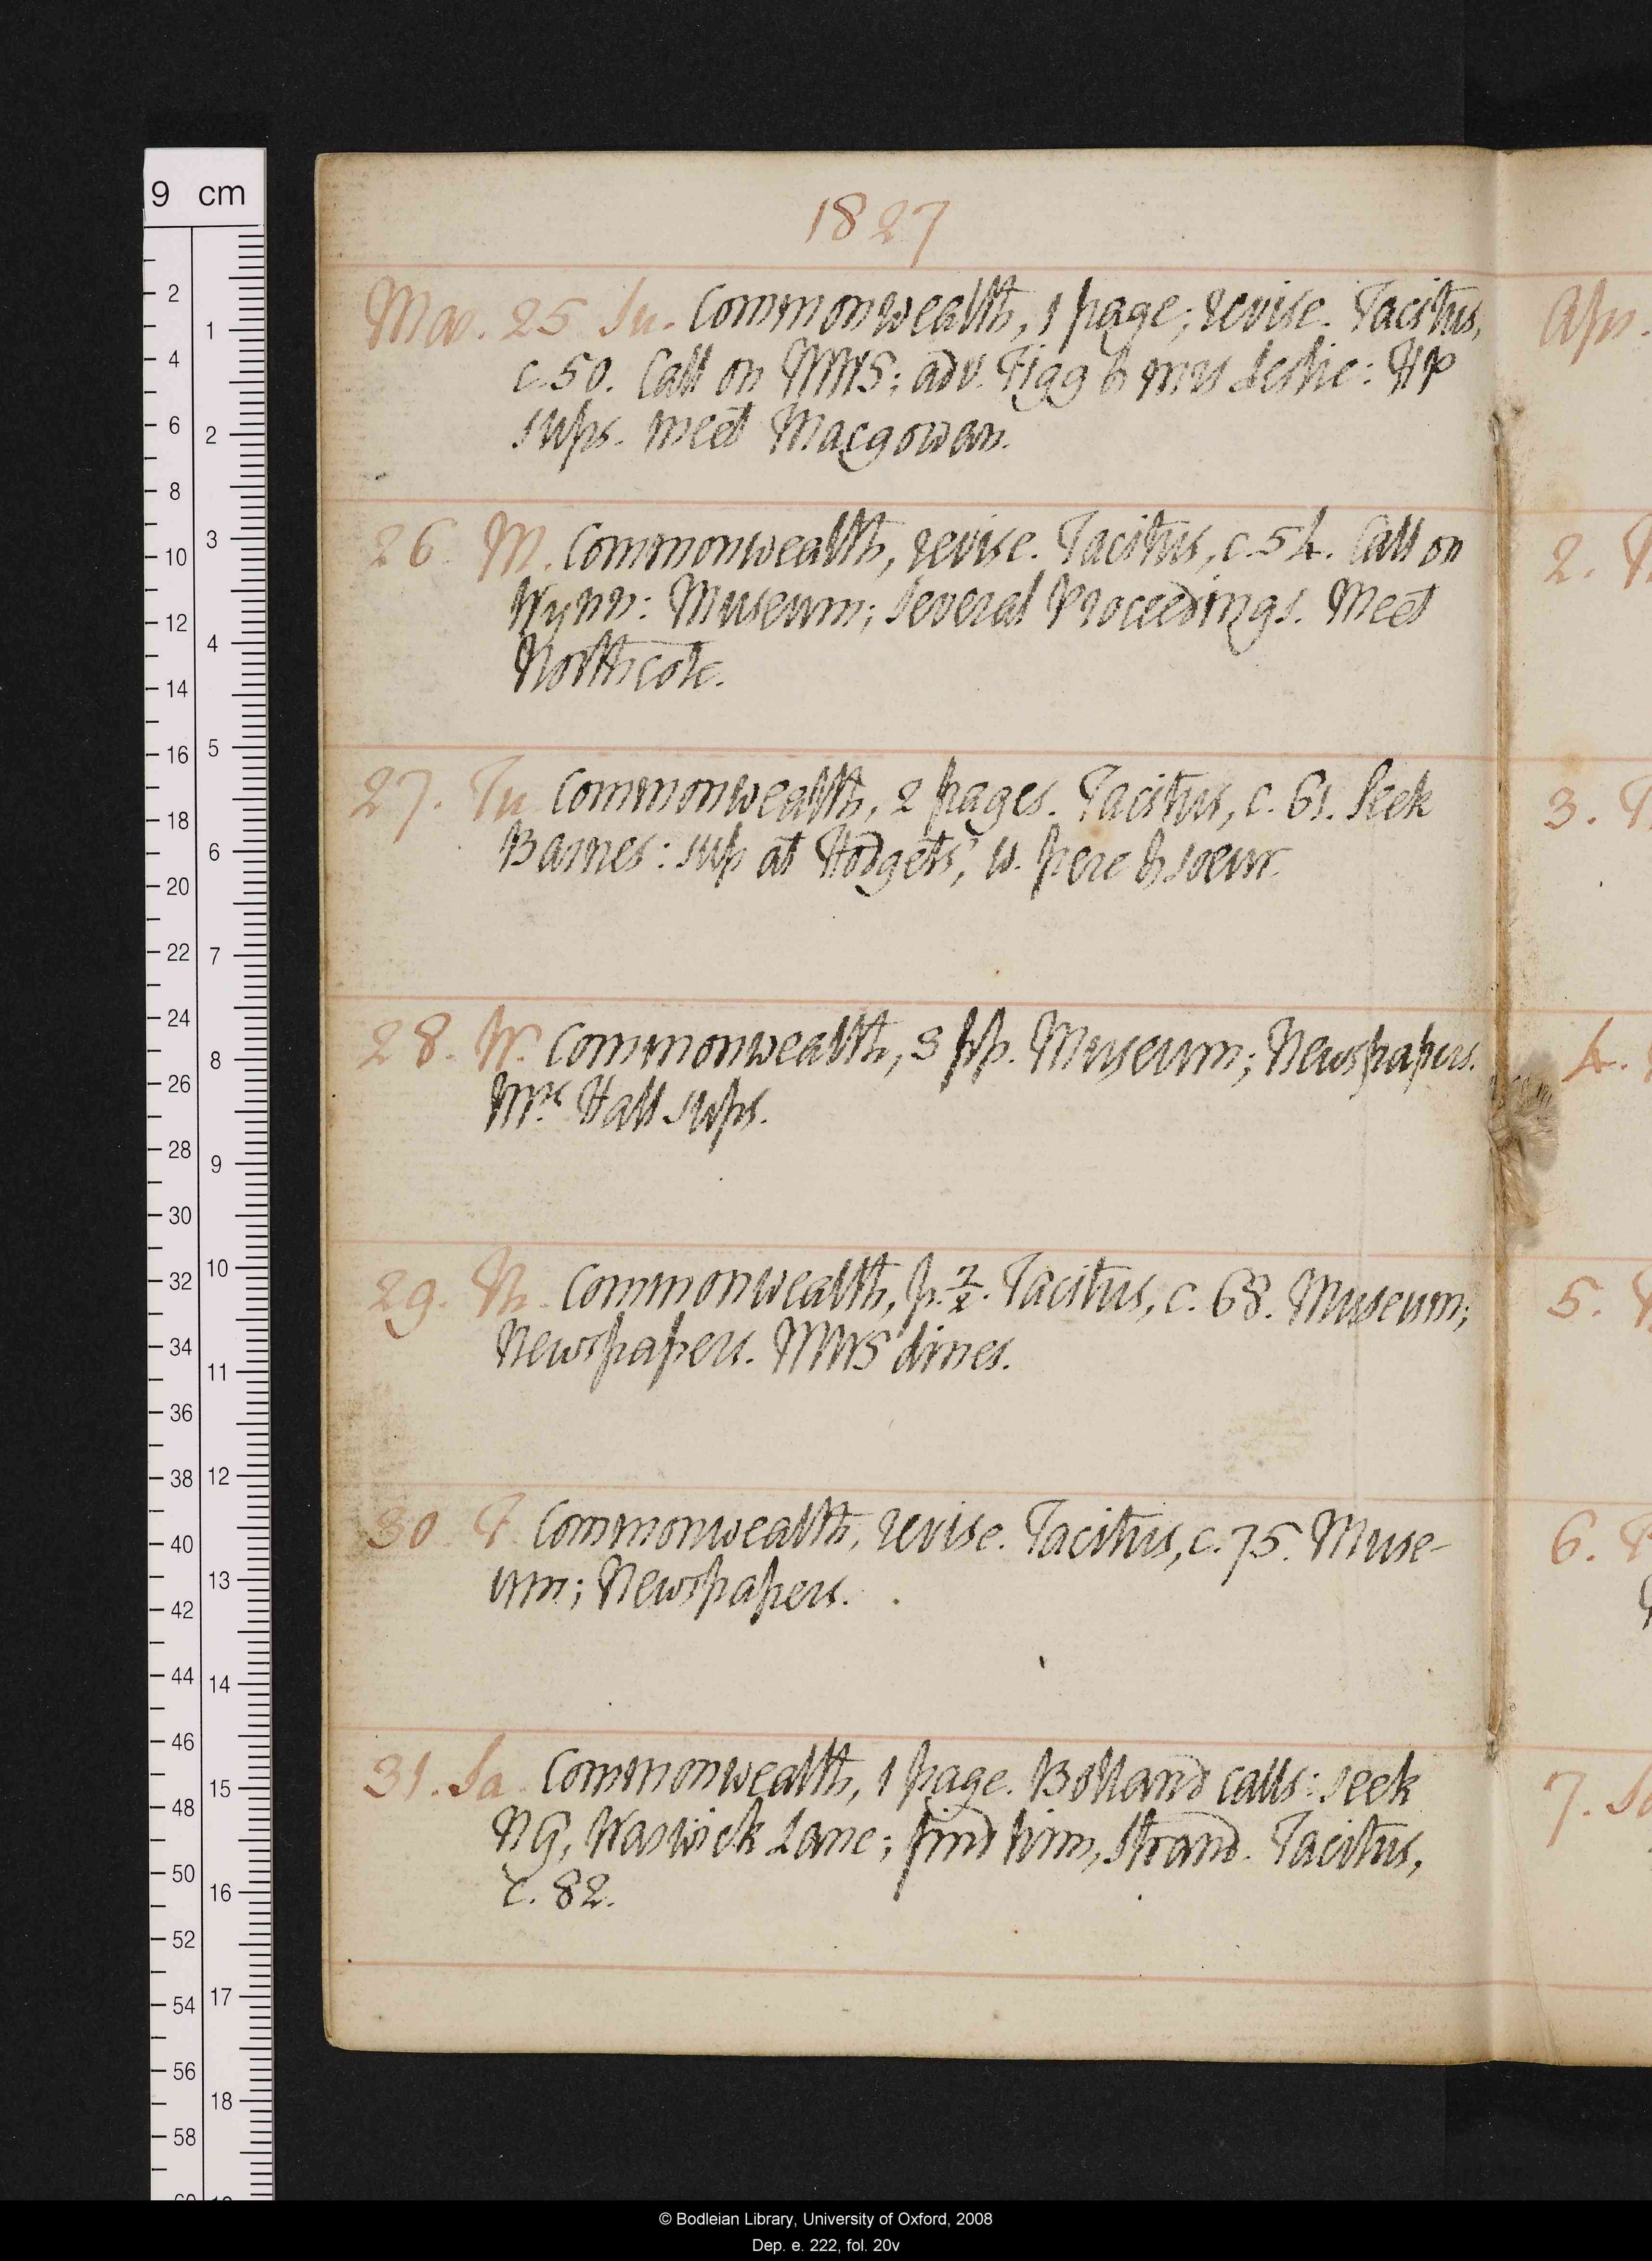 1827
Mar. 25 Su. Commonwealth, 1 page; revise. Tacitus,
c. 50. Call on MWS; adv. Figg & mrs Leslie: HP
sups. meet Macgowan.
26. M. Commonwealth, revise. Tacitus, c. 54. Call on
Wynn: Museum; Several Proceedings. Meet
Northcote.
27. Tu Commonwealth, 2 pages. Tacitus, c. 61. Seek
Barnes: sup at Hodgets', w. pere & soeur.
28. W. Commonwealth, 3 pp. Museum; Newspapers.
Mrs Hall sups.
29. Th. Commonwealth, p. 7/2. Tacitus, c. 68. Museum;
Newspapers. MWS dines.
30. F. Commonwealth, revise. Tacitus, c. 75. Muse-
um; Newspapers.
31. Sa. Commonwealth, 1 page. Bolland calls: seek
NG, Warwick Lane; find him, Strand. Tacitus,
c. 82.
Apr.
2.
3.
4.
5.
6.
7. Sa
9 cm
2 4 6 8 10 12 14 16 18 20 22 24 26 28 30 32 34 36 38 40 42 44 46 48 50 52 54 56 58
1 2 3 4 5 6 7 8 9 10 11 12 13 14 15 16 17 18
© Bodleian Library, University of Oxford, 2008
Dep. e. 222, fol. 20v